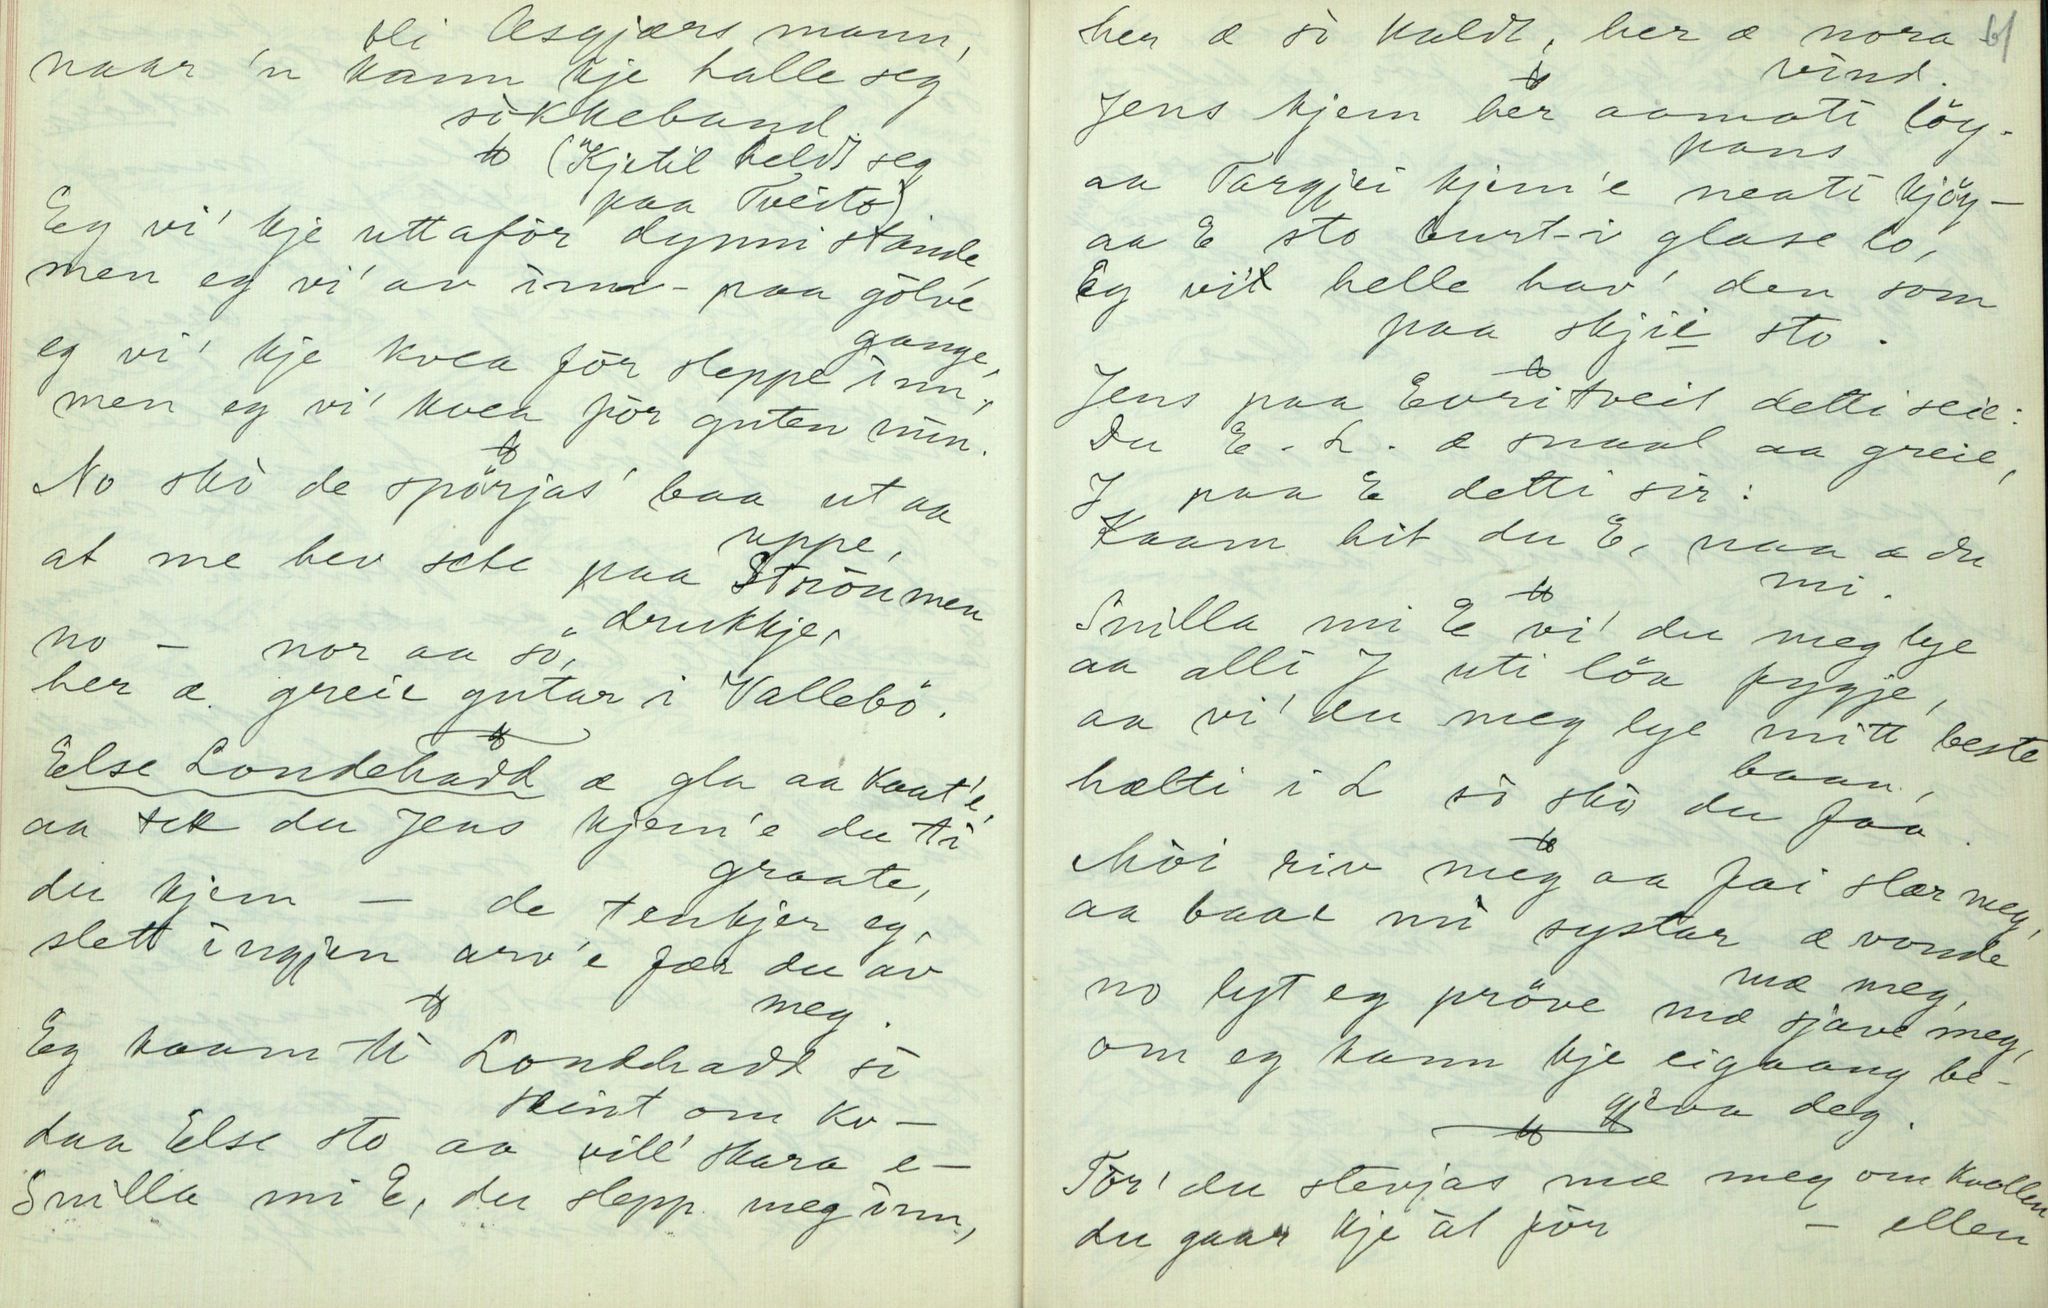 bli Asgjærs mann,
naar 'n kann kje halle seg
sikkeband.
(Kjetil heldt seg
paa Tveito)
Eg vi' kje uttafor dynni stande,
men eg vi' av inn- paa gölve
gange,
eg vi' kje kvea för sleppe inn,
men eg vi' kvea för guten min.
No skò de spörjas' baa ut aa
uppe,
at me hev sete paa Ströummen
drukkje,
no – nor aa sö,
her æ greie gutar i Vallebö.
Else Londehadd æ gla aa kaat'e,
aa tek du Jens kjem'e du ti
graate,
du kjem – de tenkjer eg,
slett ingjen arv'e fær du av
meg.
Eg kaam ti Londehadd si
seint om kv–
daa Else sto aa vill' skara e–
Snilla mi E, du slepp meg inn,
her æ sò kaldt, her æ nora
vind.
61
Jens kjem her aamoti löy-
pans
aa Targjei kjem'e neati kjöy–
aa E sto burt-i glase lo,
Eg vil helle hav' den som
paa skjie sto.
Jens paa Evritveit detti seie:
Du E. L. æ snaal aa greie,
J paa E detti sir:
Kaam hit du E, naa æ du
mi.
Snilla mi E vi' du meg lye
aa alli J uti löa fygje,
aa vi' du meg lye mitt beste
baan,
hælti i L sò skò du faa.
Mòi riv meg aa fai slær meg,
aa baae mi systar æ vonde
mæ meg,
no lyt eg pröve mæ sjave meg,
om eg kann kje eigaang be-
gjeva deg.
Tör' du stevjas mæ meg om kvellen
du gaar kje åt för – ellen